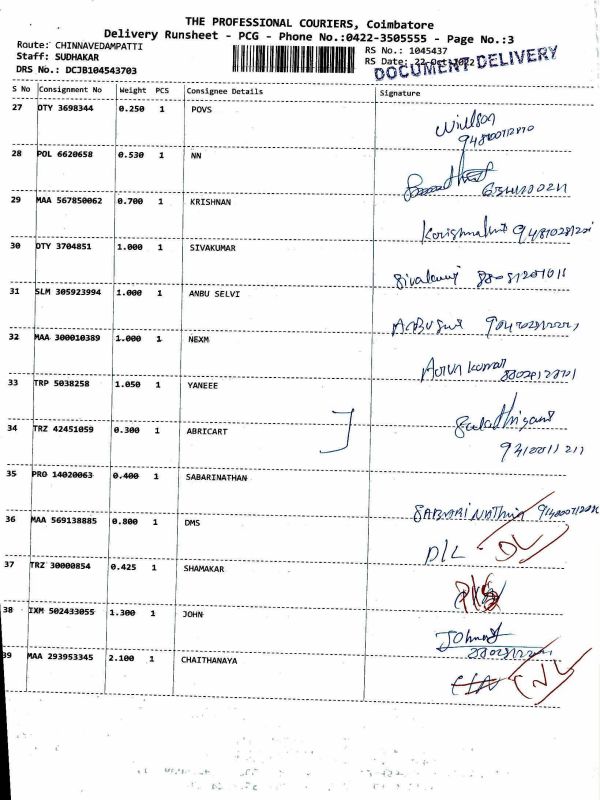 THE PROFESSIONAL COURIERS, Coimbatore
Delivery Runsheet - PCG - Phone No.:0422-3505555 - Page No.:3
Route: CHINNAVEDAMPATTI
RS No.: 1045437
Staff: SUDHAKAR
RS Date: 22-Oct-2022
DRS No.: DCJB104543703
DOCUMENT DELIVERY
S No Consignment No Weight PCS Consignee Details Signature
27 DTY 3698344 0.250 1 POVS
28 POL 6620658 0.530 1 NN
29 MAA 567850062 0.700 1 KRISHNAN
30 DTY 3704851 1.000 1 SIVAKUMAR
31 SLM 305923994 1.000 1 ANBU SELVI
32 MAA 300010389 1.000 1 NEXM
Arun kumar
33 TRP 5038258 1.050 1 YANEEE
34 TRZ 42451059 0.300 1 ABRICART
35 PRO 14020063 0.400 1 SABARINATHAN
36 MAA 569138885 0.800 1 DMS
D/L DL
37 TRZ 30000854 0.425 1 SHAMAKAR
38 IXM 502433055 1.300 1 JOHN
39 MAA 293953345 2.100 1 CHAITHANAYA